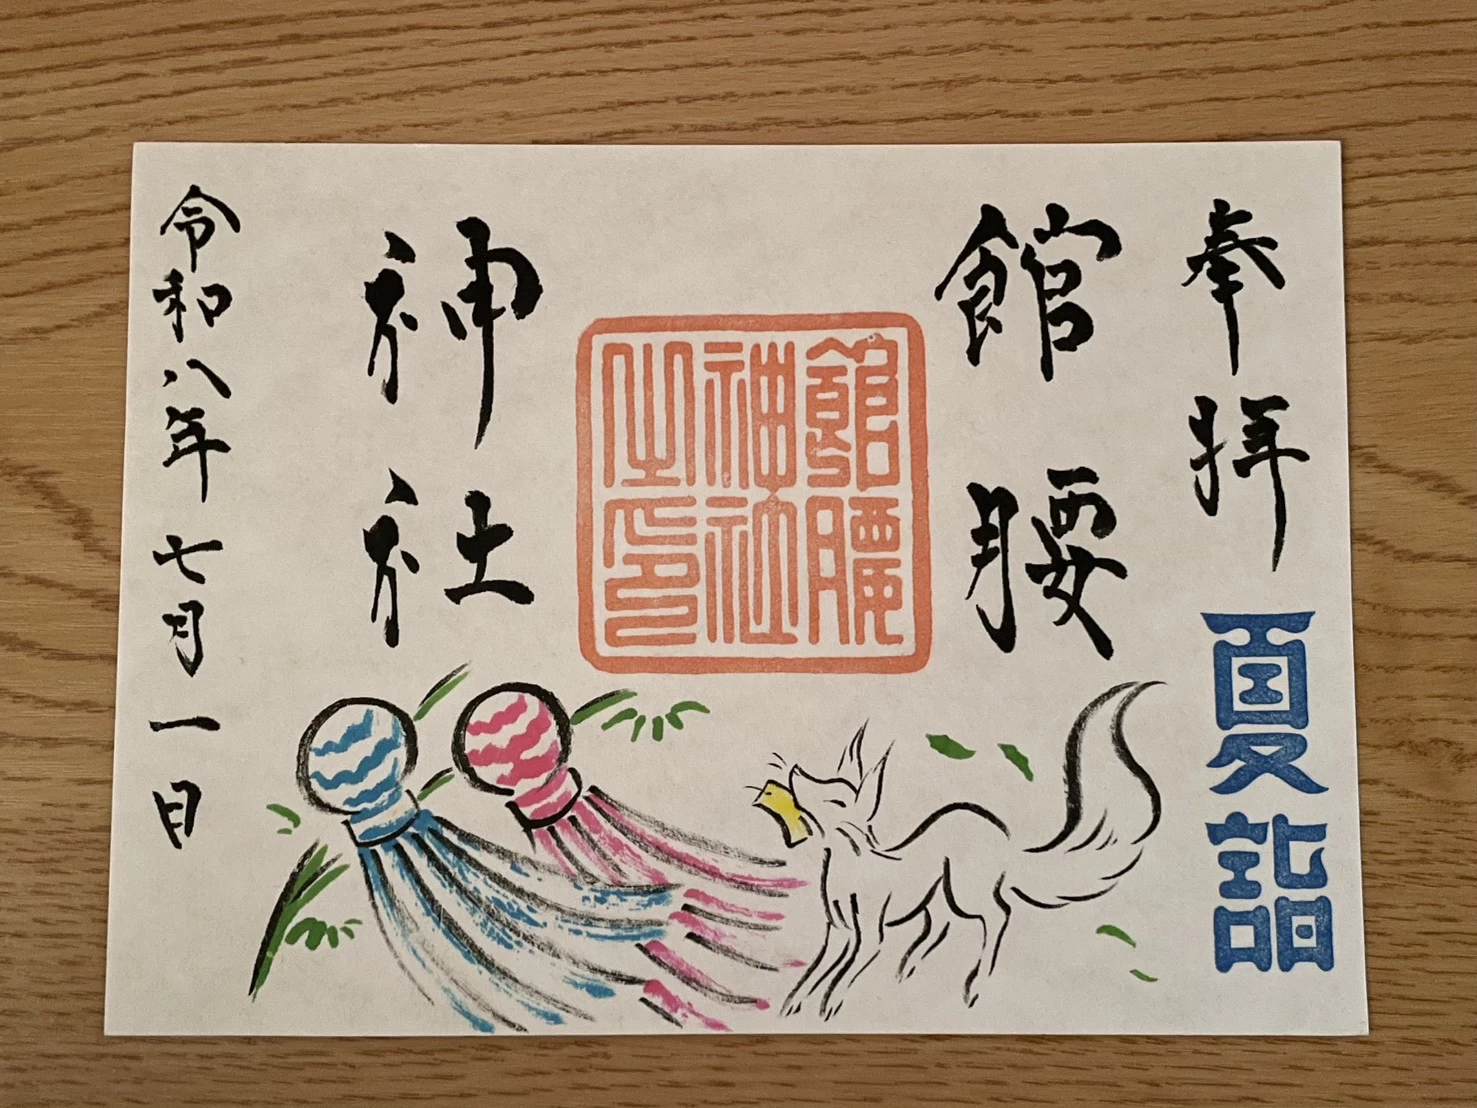 奉拝
夏詣
館腰
神社
館腰
神社
之印
令和八年七月一日